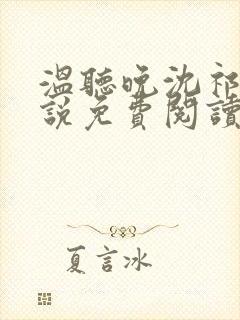 溫聽晚沈祁
說免費閱讀
夏言冰